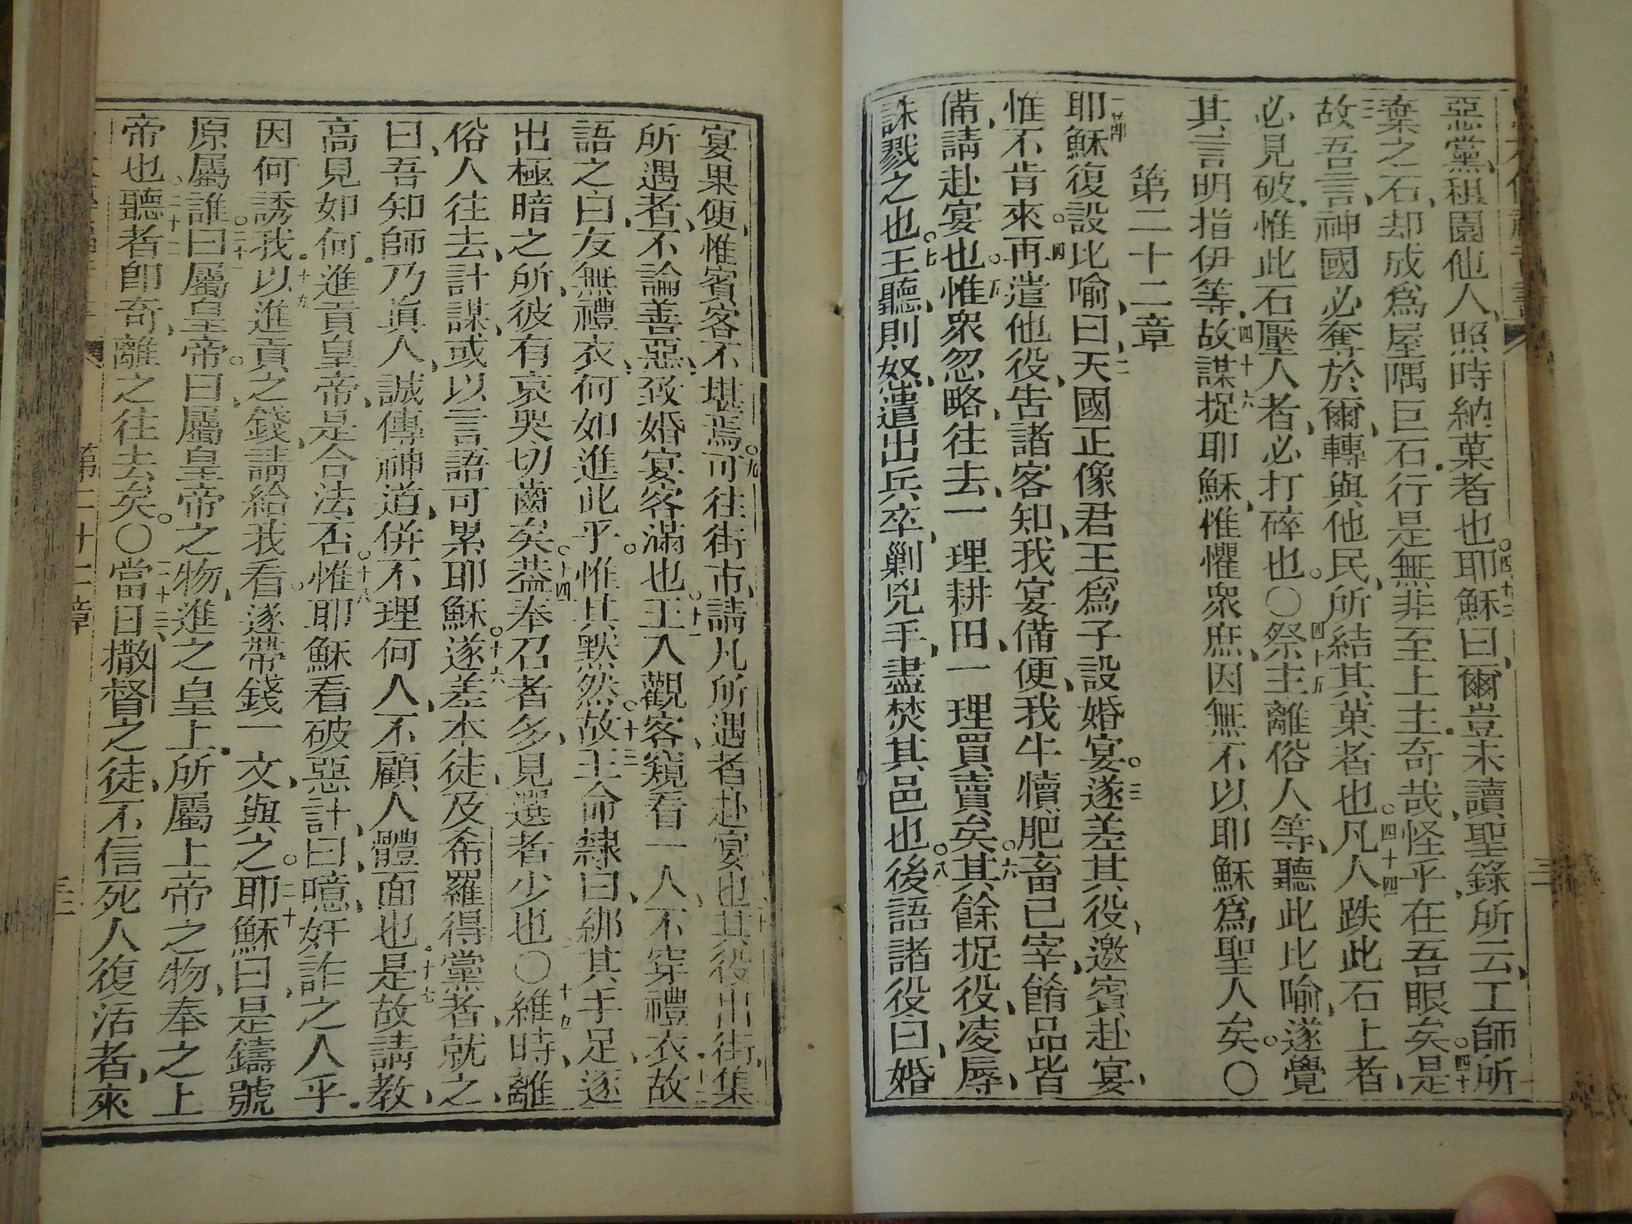 惡黨、租園他人、照時納菓者也。四十二耶穌曰、爾豈未讀聖錄所云、工師所
棄之石、却成爲屋隅巨石、行是無非至上主、奇哉、怪乎、在吾眼矣。四十三是
故吾言、神國必奪於爾、轉與他民、所結其菓者也。四十四凡人跌此石上者、
必見破、惟此石壓人者、必打碎也。〇四十五祭主離俗人等、聽此比喻、遂覺
其言明指伊等、四十六故謀捉耶穌、惟懼眾庶、因無不以耶穌爲聖人矣。〇
第二十二章
一節耶穌復設比喻、曰、二天國正像君王爲子設婚宴。三遂差其役、邀賓赴宴、
惟不肯來。四再遣他役、告諸客知、我宴備便、我牛犢肥畜已宰、餚品皆
備、請赴宴也。五惟眾忽略、往去、一理耕田、一理買賣矣。六其餘捉役、凌辱、
誅戮之也。七王聽、則怒、遣出兵卒、剿兇手、盡焚其邑也。八後語諸役曰、婚
宴果便、惟賓客不堪焉。九可往街市、請凡所遇者赴宴也。十其役出街、集
所遇者、不論善惡、致婚宴客滿也。十一王入觀客、窺看一人、不穿禮衣、故十二
語之曰、友無禮衣、何如進此乎。惟其默然。十三故王命隸曰、綁其手足、逐
出極暗之所、彼有哀哭切齒矣。十四葢奉召者多、見選者少也。〇十五維時、離
俗人往去、計謀、或以言語可累耶穌。十六遂差本徒、及希羅得黨者、就之、
曰、吾知師乃眞人、誠傳神道、併不理何人、不顧人體面也。十七是故請教、
高見如何、進貢皇帝、是合法否。十八惟耶穌看破惡計、曰、噫、奸詐之人乎、
因何誘我。十九以進貢之錢、請給我看。遂帶錢一文、與之。二十耶穌曰、是鑄號
原屬誰。二十一曰、屬皇帝。曰、屬皇帝之物、進之皇上、所屬上帝之物、奉之上
帝也。二十二聽者卽奇、離之往去矣。〇二十三當日撒督之徒、不信死人復活者、來
第二十二章